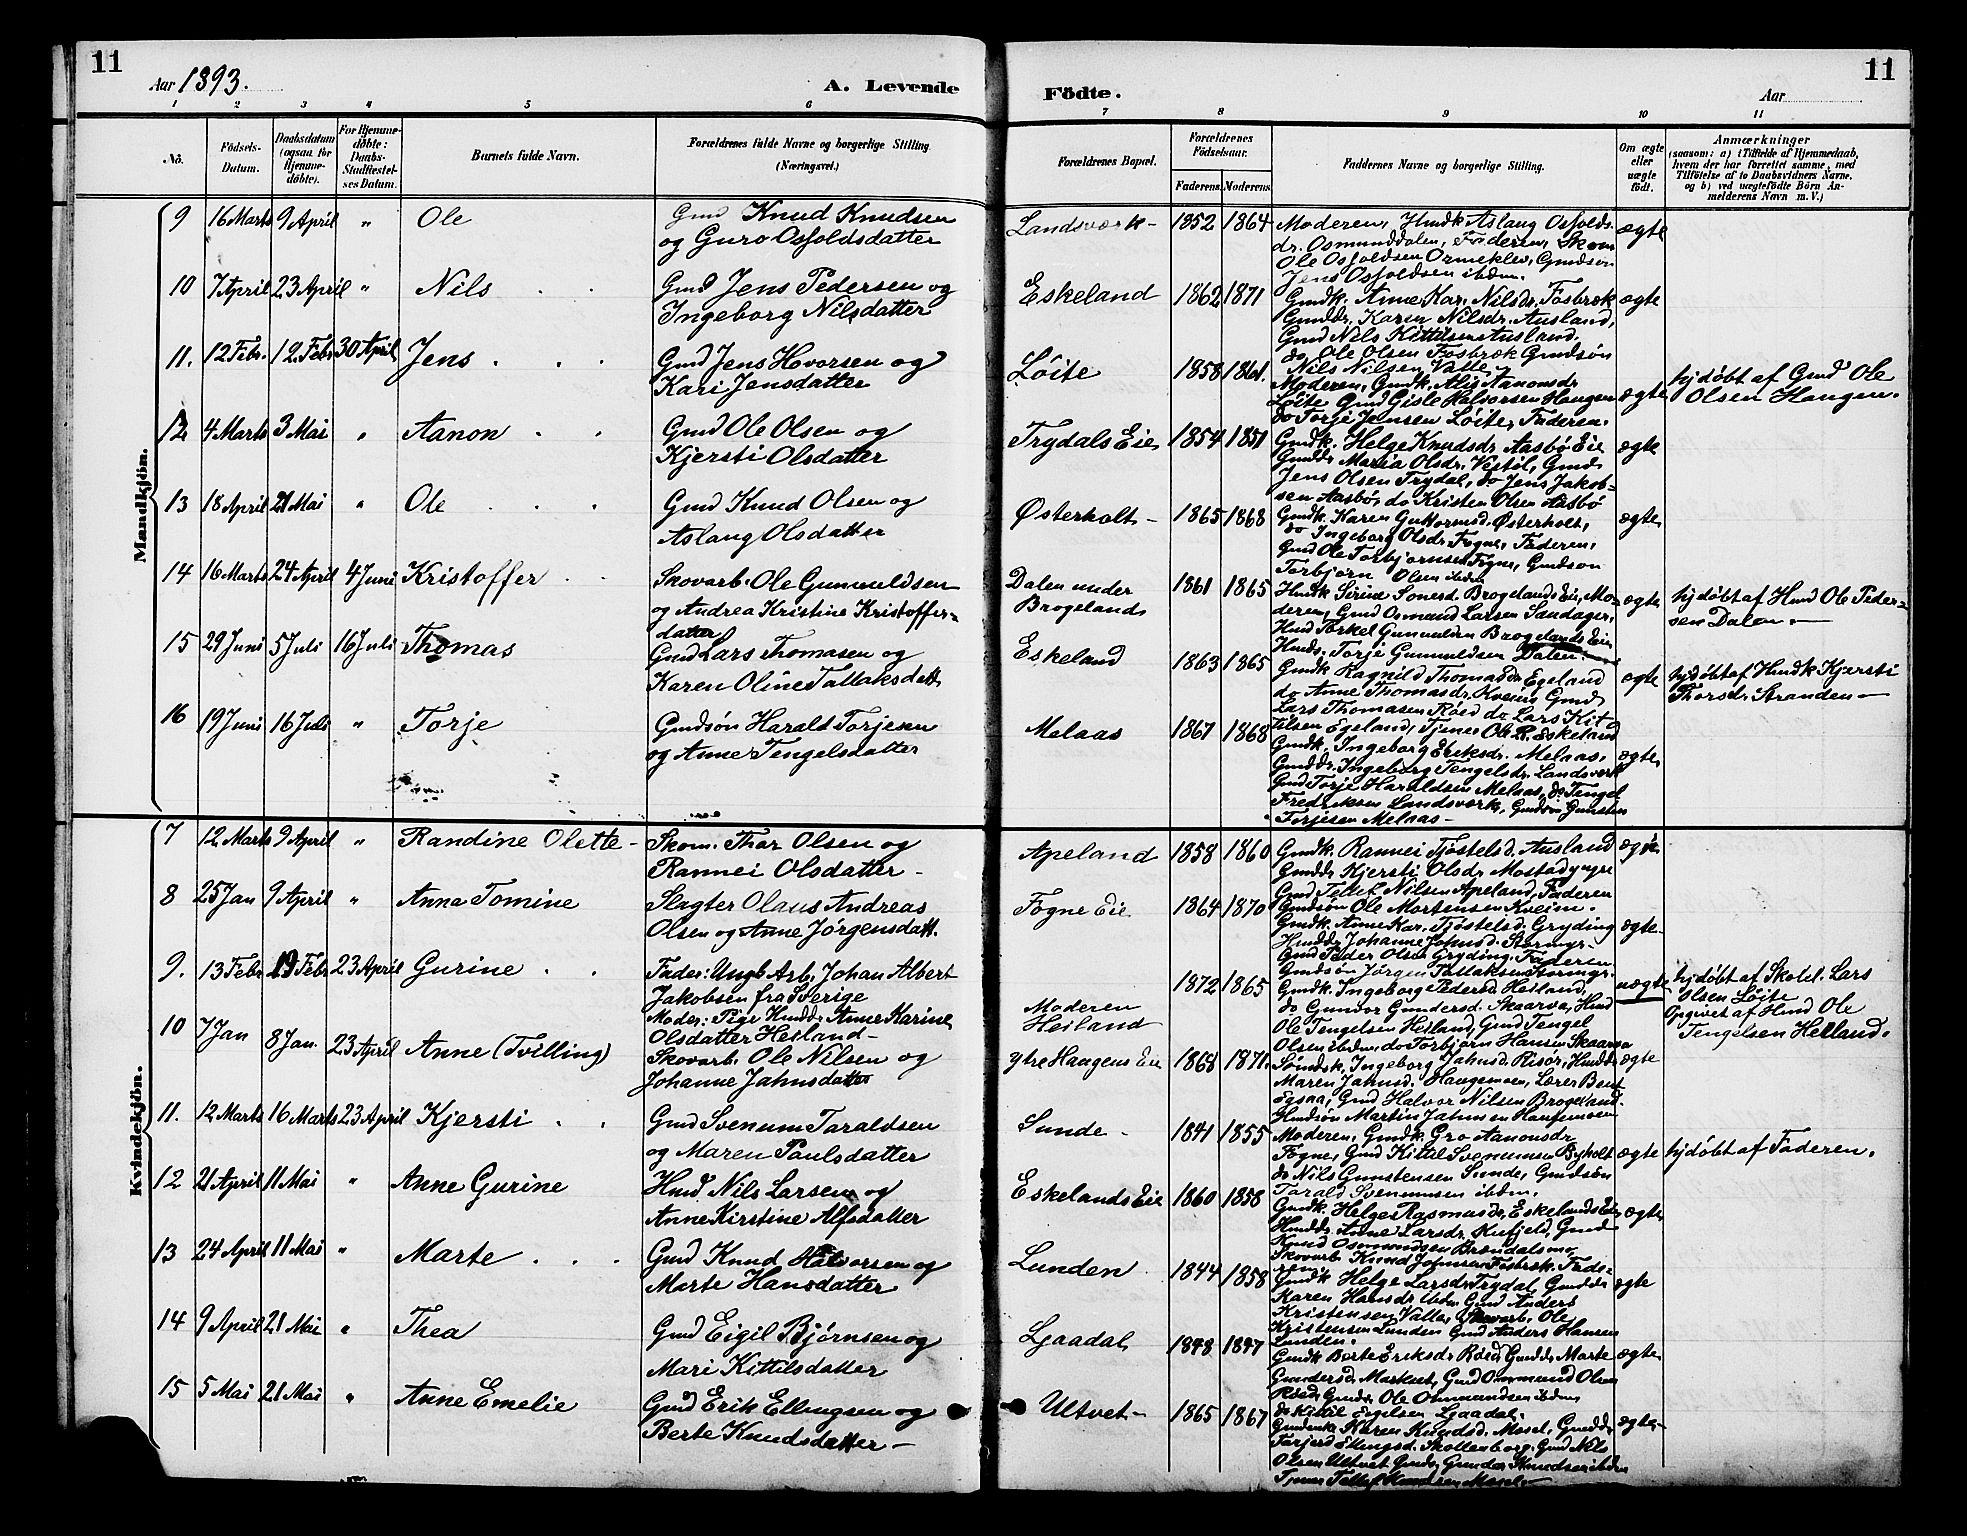 11
Aar 1893.
A. Levende
Födte.
Aar
11
1 2 3 4 5 6 7 8 9 10 11
No.
Födsels-
Datum.
Daabsdatum
(ogsaa for
Hjemme-
döbte).
For Hjemme-
döbte:
Daabs-
Stadfæstel-
ses Datum.
Barnets fulde Navn.
Forældrenes fulde Navne og borgerlige Stilling
(Næringsvei.)
Forældrenes Bopæl.
Forældrenes
Fødselsaar.
Faderens. Moderens.
Faddernes Navne og borgerlige Stilling.
Om ægte
eller
uægte
født.
Anmærkninger
(saasom: a) i Tilfælde af Hjemmedaab,
hvem der har forrettet samme, med
Tilföielse af to Daabsvidners Navne,
og b) ved uægtefödte Börn An-
melderens Navn m. V.)
Mandkjön.
9 16 Marts 9 April " Ole
Gmd Knud Knudsen
og Guro Osfoldsdatter
Landsværk- 1852 1864
Moderen, Hmdk Aslaug Osfolds
dr. Osmunddalen, Faderen, Skom
Ole Osfoldsen Ormeklev, Gmdsøn
Jens Osfoldsen ibdm.
ægte
10 7 April 23 April " Nils
Gmd Jens Pedersen og
Ingeborg Nilsdatter
Eskeland 1862 1871
Gmdk. Anne Kar. Nilsdr. Fosbræk
Gmddr. Karen Nilsdr. Ausland,
Gmd Nils Kittilsen Ausland.
do Ole Olsen Fosbræk Gmdsøn
Nils Nilsen Valle.
ægte
11. 12 Febr. 12 Febr 30 April Jens
Gmd Jens Hovorsen og
Kari Jensdatter
Løite 1858 1861.
Moderen, Gmdk. Alis Aanonsdr
Løite Gmd Gisle Halvorsen Haugen
do Torje Jensen Løite, Faderen.
ægte
hjdøbt af Gmd Ole
Olsen Haugen.
12 4 Marts 3 Mai " Aanon
Gmd Ole Olsen og
Kjersti Olsdatter
Trydals Eie 1854 1851
Gmdk. Helge Knudsdr. Aasbø Eie
Gmddr. Maria Olsdr. Vestøl, Gmd
Jens Olsen Trydal, do Jens Jakob-
sen Aasbø, do Kristen Olsen Aasbø
ægte
13 18 April 21 Mai " Ole
Gmd Knud Olsen og
Aslaug Olsdatter
Østerholt- 1865 1868
Gmdk. Karen Guttormsd. Østerholt,
do Ingeborg Olsdr. Fogne, Faderen,
Gmd Ole Torbjørnsen Fogne, Gmdsøn
Torbjørn Olsen ibdm
ægte
14 16 Marts 24 April 4 Juni Kristoffer
Skovarb. Ole Gunnuldsen
og Andrea Kristine Kristoffer-
datter
Dalen under
Brogeland 1861 1865
Hmdk Sirid Sonesd. Brogelands Eie, Mo-
deren, Gmd Osmund Larsen Sandager,
Hmd Torkel Gunnuldsen Brogelands Eie
Hmds. Torje Gunnuldsen Dalen.
ægte
hjdøbt af Hmd Ole Peder-
sen Dalen.
15 29 Juni 5 Juli 16 Juli Thomas
Gmd Lars Thomasen og
Karen Oline Tallaksdatt
Eskeland 1863 1865
Gmdk Ragnild Thomasdr. Egeland
do Anne Thomasdr. Kveim Gmd
Lars Thomasen Røed do Lars Kit-
tilsen Egeland, Tjener Ole R. Eskeland
ægte
hjdøbt af Hmdk Kjersti
Thorsdr. Stranden
16 19 Juni 16 Juli " Torje
Gmdsøn Harald Torjesen
og Anne Tengelsdatter
Melaas 1867 1868
Gmdk. Ingeborg Eriksdr. Melaas,
Gmddr. Ingeborg Tengelsdr. Landsverk
Gmd Torje Haraldsen Melaas, do Tengel
Fredriksen Landsværk, Gmdsøn Gunsten
Torjesen Melaas
ægte
Kvindekjön.
7 12 Marts 9 April " Randine Olette
Skom. Thor Olsen og
Rannei Olsdatter
Apeland 1858 1860
Gmdk. Rannei Tjøstelsd. Ausland
Gmddr Kjersti Olsdr. Mostadyngre
Gmd Tellef Nilsen Apeland, Faderen
Gmdsøn Ole Mortensen Kveim.
ægte
8 25 Jan 9 April " Anna Tomine
Slagter Olaus Andreas
Olsen og Anne Jørgensdatt.
Fogne Eie 1864 1870
Gmdk. Anne Kar. Tjøstelsd. Gryding
Hmddr Johanne Jahnsd. Storingr.
Gmd Peder Olsen Gryding, Faderen
Gmdsøn Jørgen Tallaksen Storingr.
ægte
9. 13 Febr 19 Febr 23 April Gurine
Fader: Ungk Arb. Johan Albert
Jakobsen fra Sverige
Moder: Pige Hmddr. Anne Karine
Olsdatter Heiland
Moderen
Heiland 1872 1865
Gmdk. Ingeborg Pedersd. Heiland,
do Gunvor Gundersd. Skaarva, Hmd
Ole Tengelsen Heiland, Gmd Tengel
Olsen ibdm, do Torbjørn Hansen Skaarva
uægte
hjdøbt af Skolel. Lars
Olsen Løite
Opgivet af Hmd Ole
Tengelsen Heiland.
10 7 Jan 8 Jan. 23 April Anne (Tvilling)
Skovarb. Ole Nilsen og
Johanne Jahnsdatter
Ytre Haugens Eie 1868 1871.
Sømdsk. Ingeborg Jahnsd. Risør, Hmddr
Maren Jahnsd. Haugemoen, Lærer Bent
Egsaa, Gmd Halvor Nilsen Brogeland.
Hmdsøn Martin Jahnsen Haugemoen
ægte
11. 12 Marts 16 Marts 23 April Kjersti
Gmd Svenum Taraldsen
og Maren Paulsdatter
Sunde 1841 1855
Moderen, Gmdk. Gro Aanonsdr
Fogne, Gmd Kittel Svenumsen Byholt
do Nils Gunstensen Sunde, Gmdsøn
Tarald Svenumsen ibdm.
ægte
hjdøbt af Faderen.
12 21 April 11 Mai " Anne Gurine
Hmd Nils Larsen og
Anne Kirstine Alfsdatter
Eskelands Eie 1860 1858
Gmdk. Helge Rasmusdr. Eskelands Eie
Hmddr. Anne Larsdr. Rufjeld, Gmd
Knud Osmundsen Brændalsmo,
Skovarb. Knud Johnsen Fosbræk, Fade-
ren
ægte
13 24 April 11 Mai " Marte
Gmd Knud Halvorsen og
Marte Hansdatter
Lunden 1844 1858
Gmdk Helge Larsdr. Trydal, Gmddr
Karen Hansdr. ibdm Gmd Anders
Kristensen Valle, Skovarb. Ole
Kristensen Lunden Gmd Anders Hansen
Lunden.
ægte
14 9 April 21 Mai " Thea
Gmd Eigil Bjørnsen og
Mari Kittilsdatter
Ljaadal 1848 1847
Gmdk Berte Eriksdr. Røed, Gmddr. Marte
Gundersd. Markset, Gmd Osmund Olsen
Røed, Gmds. Ole Osmundsen ibdm
do Kittil Eigilsen Ljaadal.
ægte
15 5 Mai 21 Mai " Anne Emelie
Gmd Erik Ellingsen og
Berte Knudsdatter
Ultvet 1865 1867
Gmdenk. Karen Knudsd. Mosel, Gmddr
Torjerd Ellingsd. Skottenborg, Gmd Nils
Olsen Ultvet, Gmds. Gunder Knudsen ibdm
Tjener Tellef Knudsen Mosel
ægte